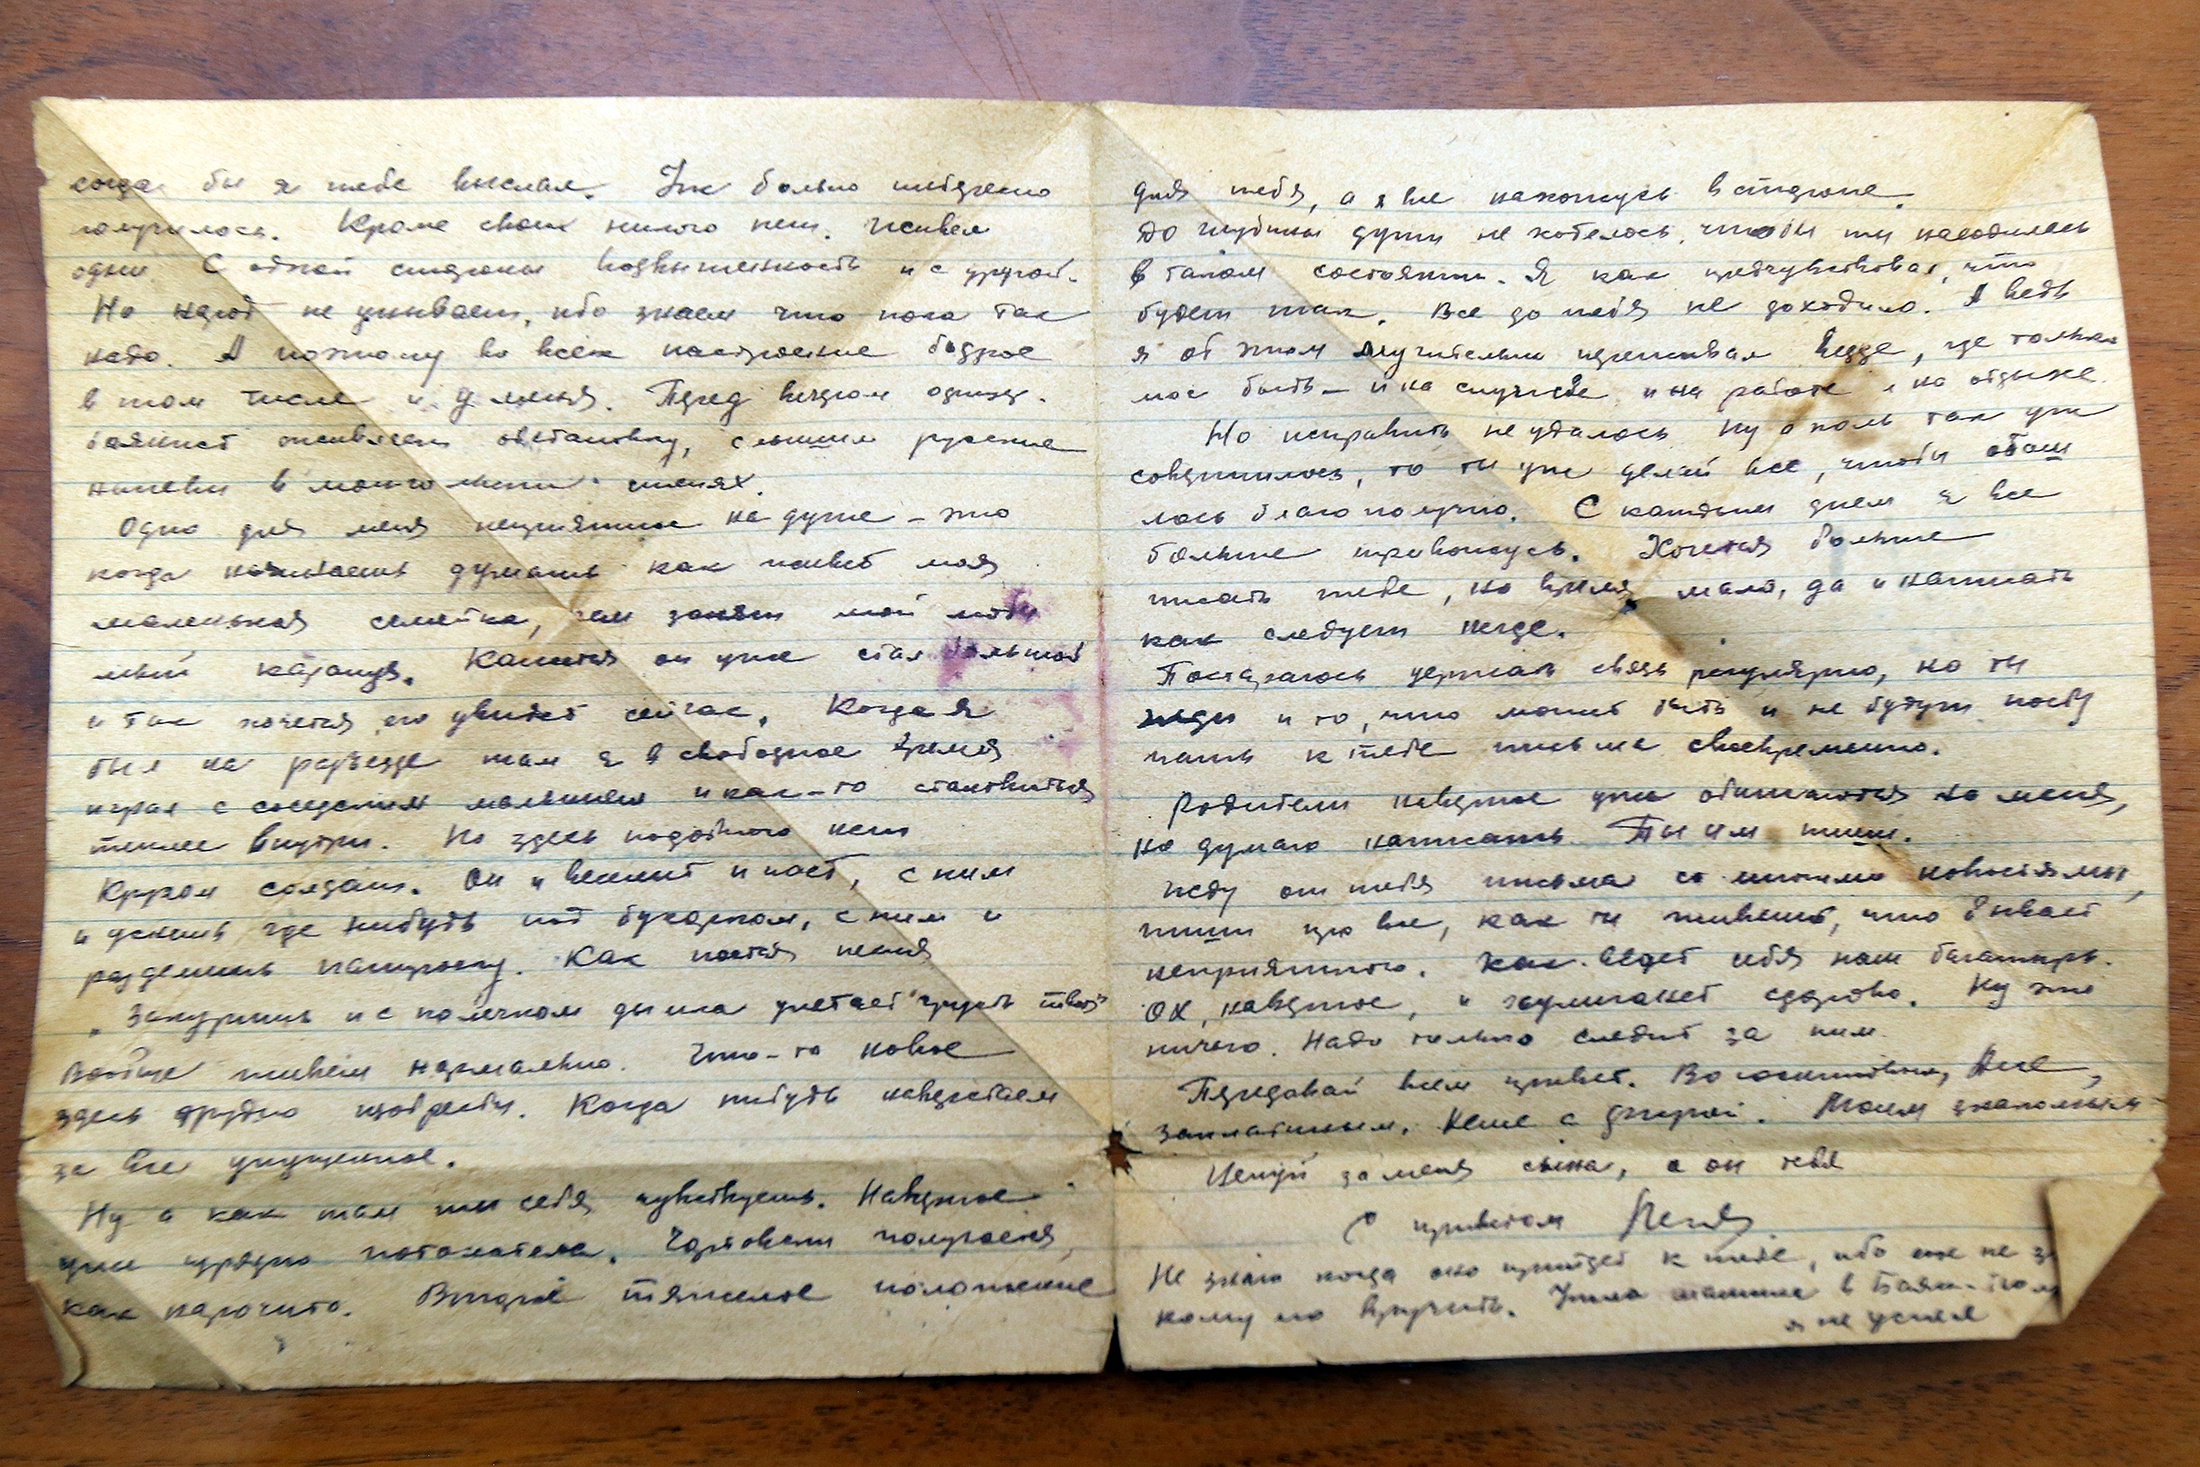 когда бы я тебе выслал. Уж больно
получилось. Кроме своих никого нет. Живем
одни. С одной стороны возвышенность и с другой.
Но народ не унывает, ибо знаем что пока так
надо. А поэтому во всех настроение бодрое
в том числе и у меня. Перед вечером
баянист оживляет обстановку, слышим русские
напевы в монгольских степях.
Одно для меня неприятное на душе – это
когда начинаешь думать как живет моя
маленькая семейка, чем занят мой люби
мый карапуз. Кажется он уже стал большой
и так хочется его увидет сейчас. Когда я
был на разъезде там я в свободное время
играл с соседским малышем и как-то становится
теплее внутри. Но здесь подобного нет
Кругом солдаты. Он и веселит и поет, с ним
и уснешь где нибудь под бугорком, с ним и
разделишь папироску. Как поется песня
„Закуришь и с колечком дыма улетает грусть твоя"
Вообще живем нормально. Что-то новое
здесь трудно изобрести. Когда нибудь наверстаем
за все упущенное.
Ну а как там ты себя чувствуешь. Наверное
уже изрядно потолстела. Чертовски получается,
как нарочито. Второе тяжелое положение
для тебя, а я все нахожусь в стороне.
До глубины души не хотелось, чтобы ты находилась
в таком состоянии. Я как предчувствовал, что
будет так. Все до тебя не доходило. А ведь
я об этом мучительно переживал везде, где только
мог быть – и на службе и на работе и на отдыхе.
Но исправить не удалось. Ну а коль так уж
совершилось, то ты уже делай все, чтобы обош
лось благополучно. С каждым днем я все
больше тревожусь. Хочется больше
писать тебе, но время мало, да и написать
как следует негде.
Постараюсь держать связь регулярно, но ты
жди и то, что может быть и не будут посту
пать к тебе письма своевременно.
Родители наверное уже обижаются на меня,
но думаю написать. Ты им пиши.
Жду от тебя письма со многими новостями,
пиши про все, как ты живешь, что бывает
неприятного. Как ведет себя наш багатырь.
Ох, наверное, и хулиганет здорово. Ну это
ничего. Надо только следит за ним
Передавай всем привет.
Заплаткиным, Моим знакомым
Целуй за меня сына, а он тебя
С приветом Леня
Не знаю когда оно прийдет к тебе, ибо еще не
кому его вручить. Ушла машина в Баян-
я не успел